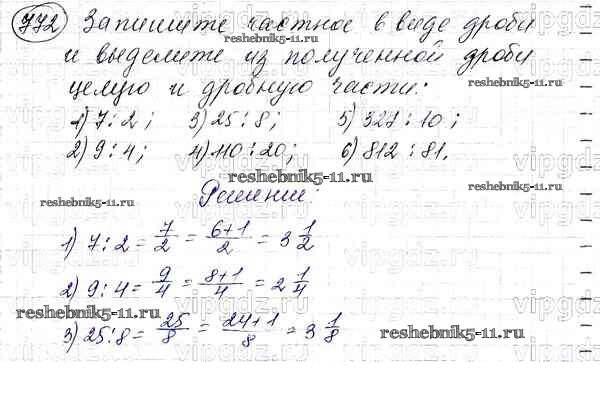 772 Запишите частное в виде дроби
и выделите из полученной дроби
целую и дробную части:
1) 7:2; 3) 25:8; 5) 327:10;
2) 9:4; 4) 110:20; 6) 812:81.
Решение:
1) 7:2 = 7/2 = 6+1/2 = 3 1/2
2) 9:4 = 9/4 = 8+1/4 = 2 1/4
3) 25:8 = 25/8 = 24+1/8 = 3 1/8
reshebnik5-11.ru
reshebnik5-11.ru
reshebnik5-11.ru
reshebnik5-11.ru
reshebnik5-11.ru
reshebnik5-11.ru
reshebnik5-11.ru
vipgdz